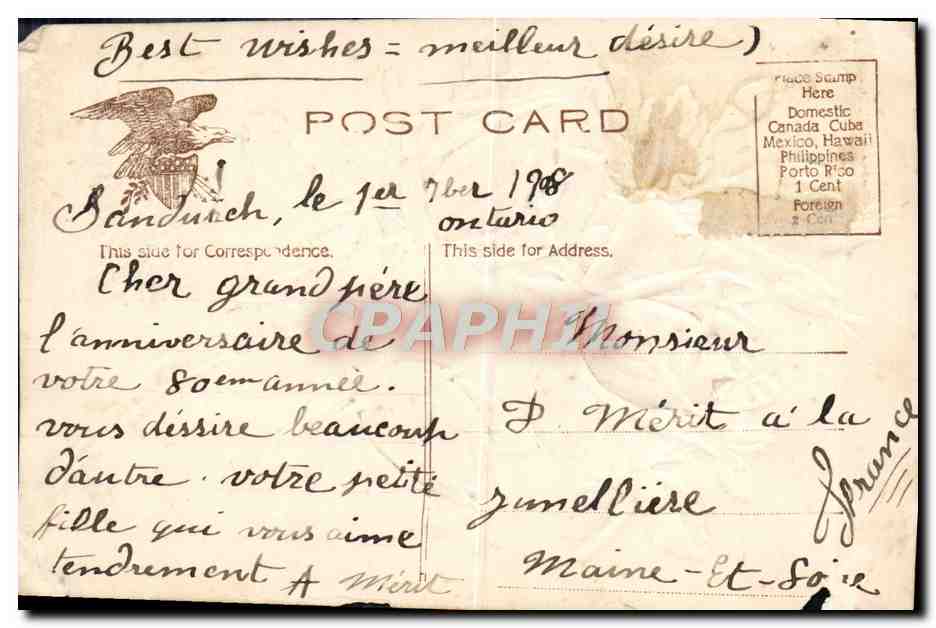 Best wishes = meilleur désire)
POST CARD
Place Stamp
Here
Domestic
Canada Cuba
Mexico, Hawaii
Philippines
Porto Rico
1 Cent
Foreign
2 Cen
Sandwich, le 1er 7ber 1908
ontario
This side for Correspondence.
This side for Address.
Cher grand père
l'anniversaire de
votre 80em année.
vous déssire beaucoup
d'autre. votre petite
fille qui vous aime
tendrement A Mérit
CPAPHIL
Monsieur
P. Mérit a' la
jumelliére
Maine-Et-Loire
France